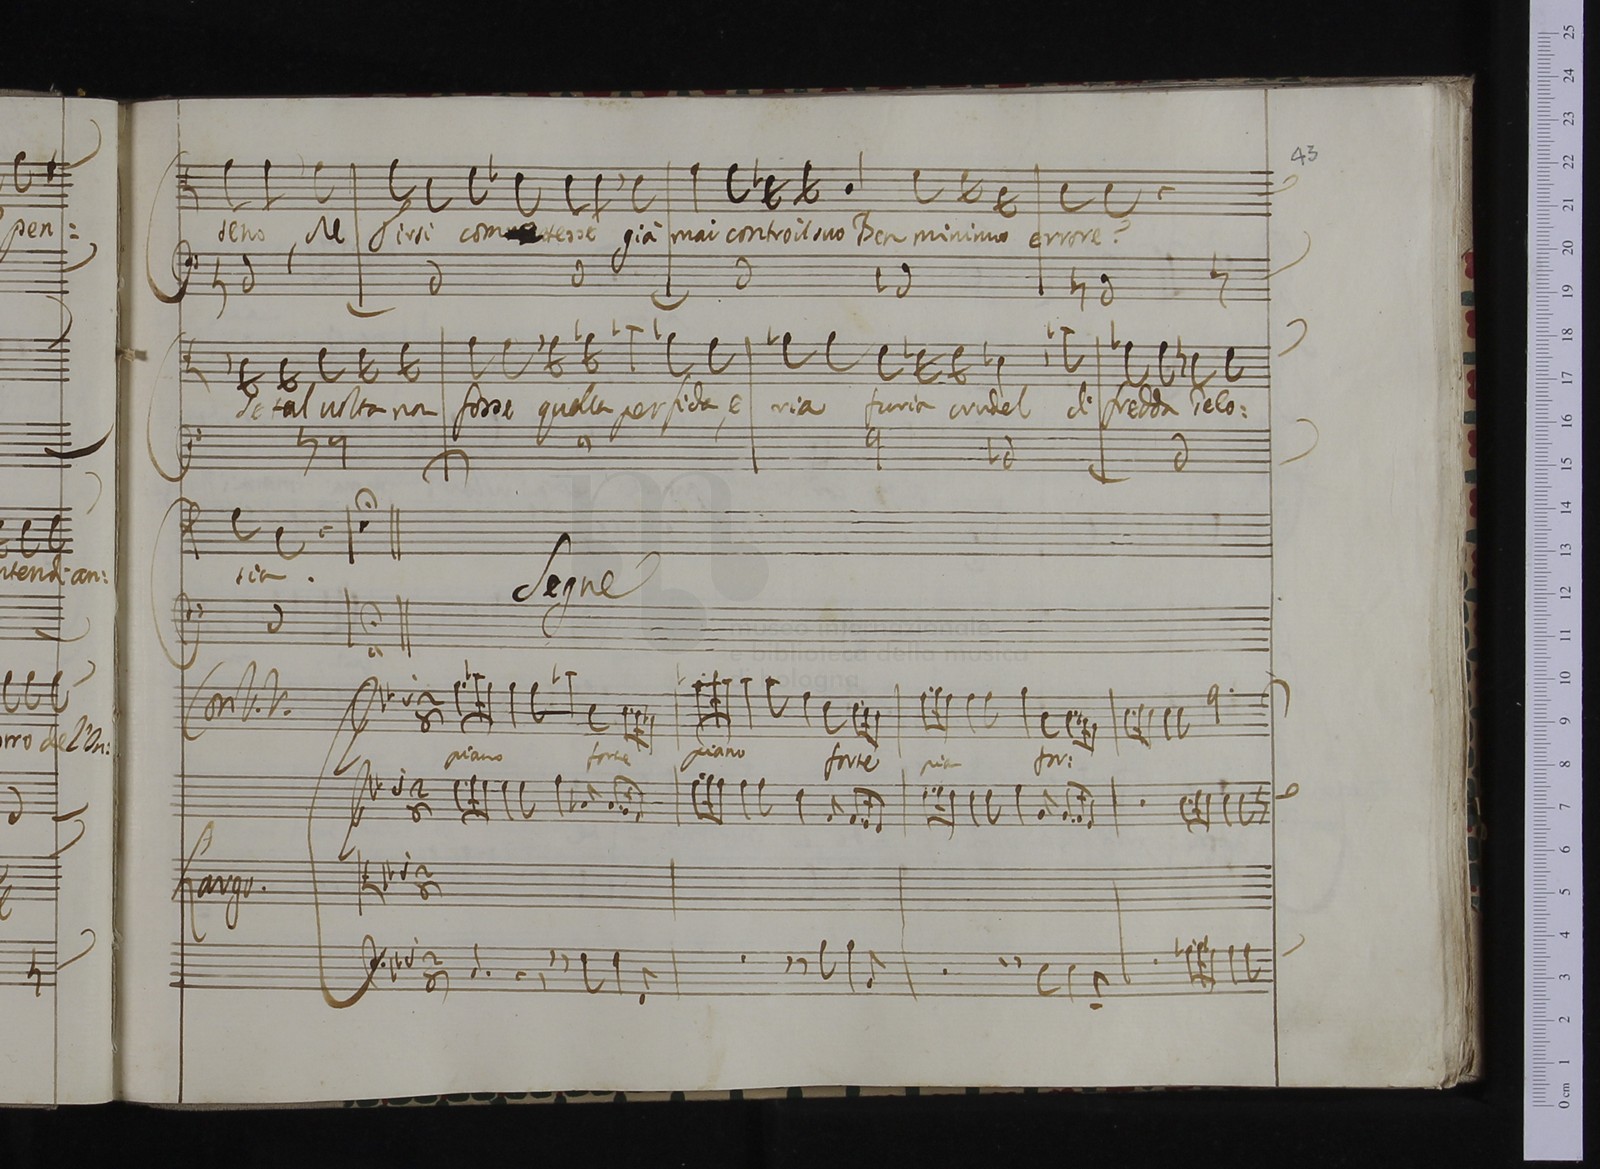 43
pen:
seno, Ne Girsi com tesse già mai contro il suo Ben minimo errore?
se tal volta non fosse quella perfida, e ria furia crudel di fredda Gelo:
sia.
Segue
Con V.V.
piano forte piano forte pia for:
Largo.
museo internazionale
e biblioteca della musica
di bologna
25
24
23
22
21
20
19
18
17
16
15
14
13
12
11
10
9
8
7
6
5
4
3
2
1
0 cm